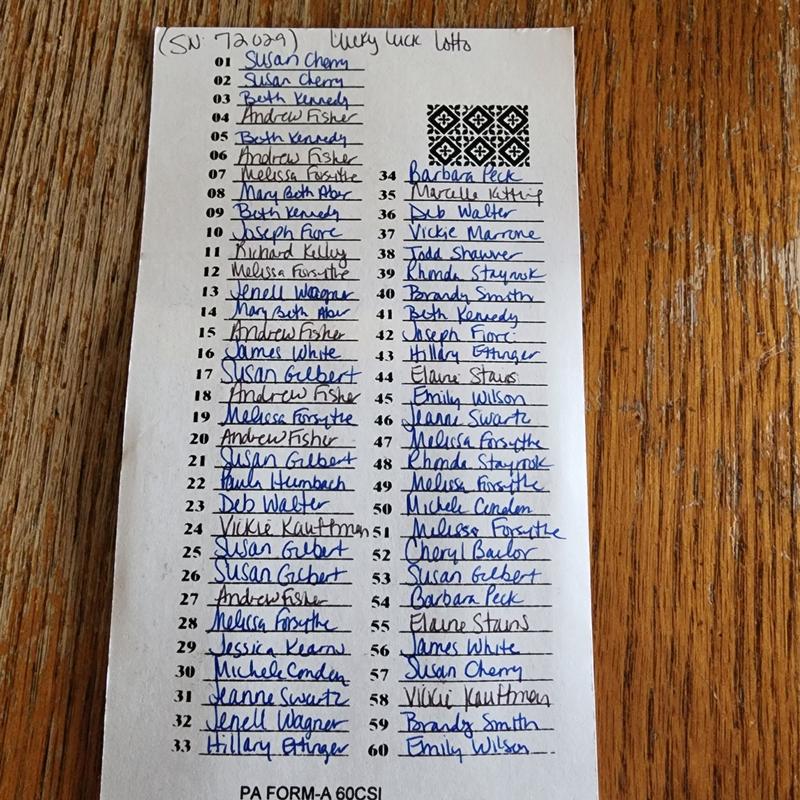 (SN: 72029) Lucky Luck Lotto
01 Susan Cherry
02 Susan Cherry
03 Beth Kennedy
04 Andrew Fisher
05 Beth Kennedy
06 Andrew Fisher
07 Melissa Forsythe
08 Mary Beth Aber
09 Beth Kennedy
10 Joseph Fiore
11 Richard Kelluy
12 Melissa Forsythe
13 Jenell Wagner
14 Mary Beth Aber
15 Andrew Fisher
16 James White
17 Susan Gilbert
18 Andrew Fisher
19 Melissa Forsythe
20 Andrew Fisher
21 Susan Gilbert
22 Paula Humbach
23 Deb Walter
24 Vickie Kauffman
25 Susan Gilbert
26 Susan Gilbert
27 Andrew Fisher
28 Melissa Forsythe
29 Jessica Kearns
30 Michele Condon
31 Jeanne Swartz
32 Jenell Wagner
33 Hillary Ettinger
34 Barbara Peck
35 Marcelle
36 Deb Walter
37 Vickie Marrone
38 Todd Shawver
39 Rhonda Staynok
40 Brandy Smith
41 Beth Kennedy
42 Joseph Fiore
43 Hillary Ettinger
44 Elaine Stairs
45 Emily Wilson
46 Jeanne Swartz
47 Melissa Forsythe
48 Rhonda Staynok
49 Melissa Forsythe
50 Michele Condon
51 Melissa Forsythe
52 Cheryl Bailor
53 Susan Gilbert
54 Barbara Peck
55 Elaine Stairs
56 James White
57 Susan Cherry
58 Vickie Kauffman
59 Brandy Smith
60 Emily Wilson
PA FORM-A 60CSI